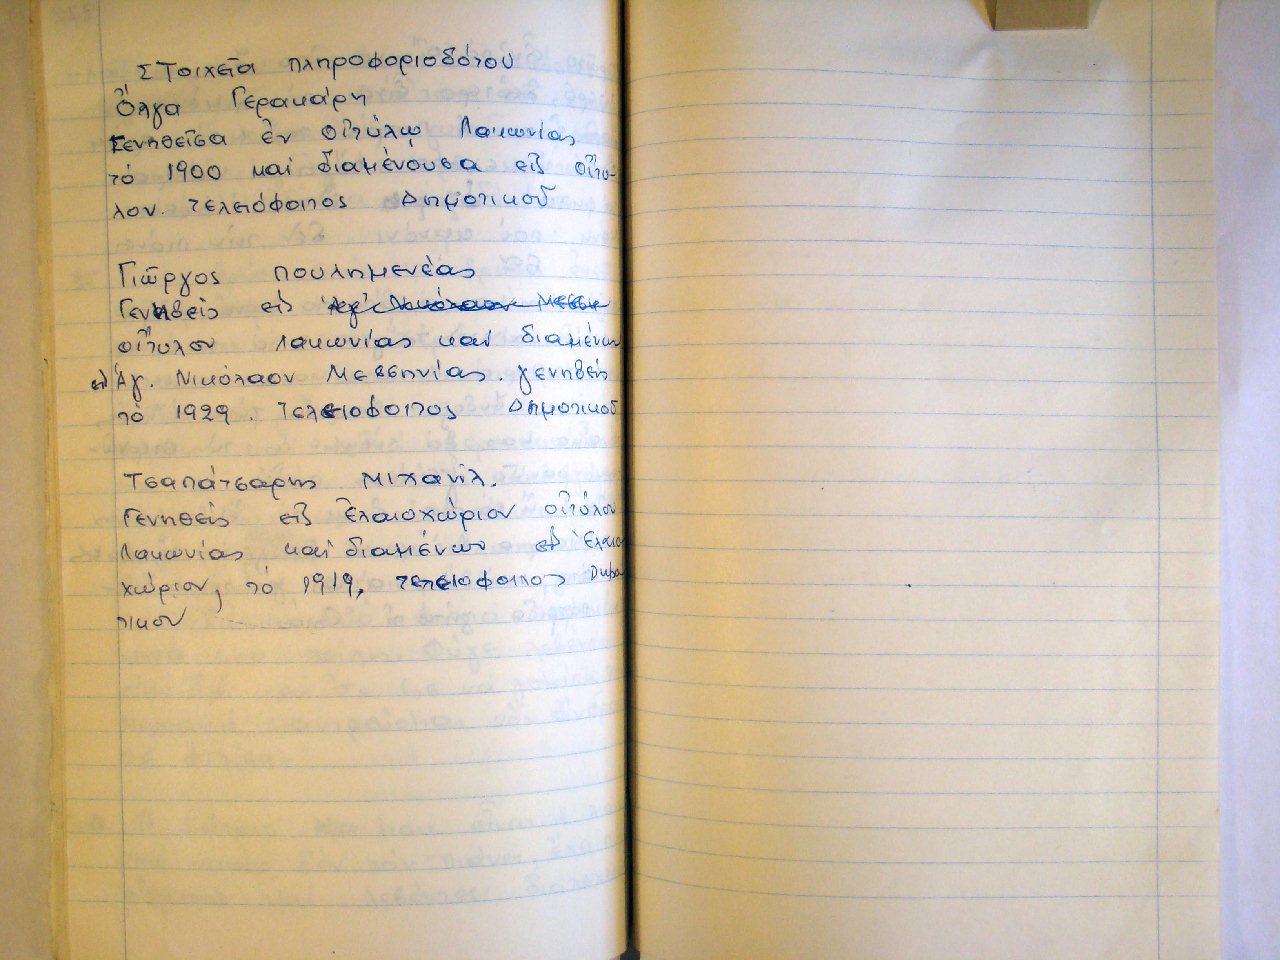 Στοιχεῖα πληροφοριοδότου
Ὄλγα Γερακάρη
Γενηθεῖσα ἐν Οἰτύλῳ Λακωνίας
τό 1900 καί διαμένουσα εἰς Οἴτυ-
λον. τελειόφοιτος Δημοτικοῦ
Γιῶργος Πουλημενέας
Γενηθείς εἰς Ἁγ. Νικόλαον Μεσση
Οἴτυλον Λακωνίας καί διαμένων
εἰς Ἁγ. Νικόλαον Μεσσηνίας. γενηθείς
τό 1929. Τελειόφοιτος Δημοτικοῦ
Τσαπάτσαρης Μιχαήλ.
Γενηθείς εἰς Ἐλαιοχώριον Οἰτύλου
Λακωνίας καί διαμένων εἰς Ἐλαιο
χώριον, τό 1919, τελειόφοιτος Δημο
τικου